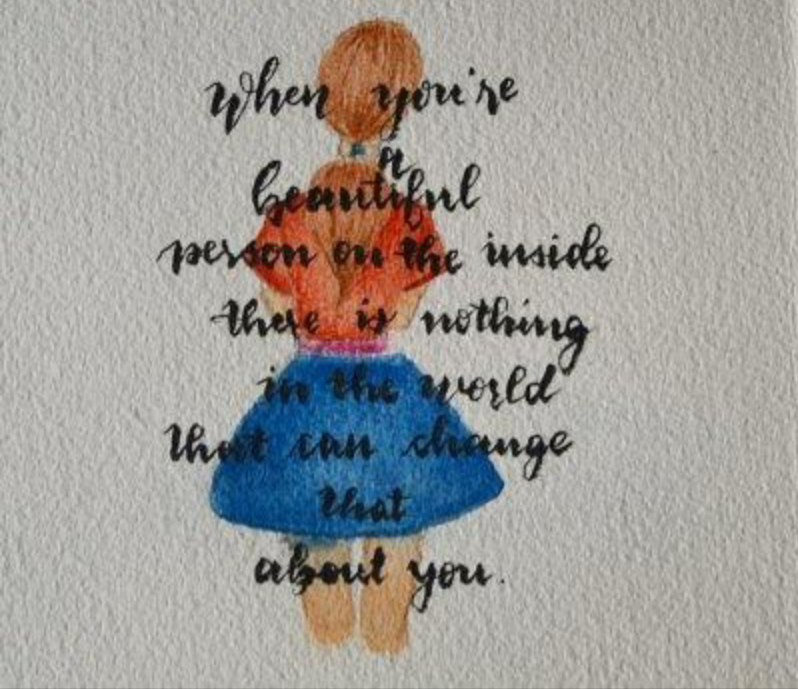 When you're
a
beautiful
person on the inside
there is nothing
in the world
that can change
that
about you.